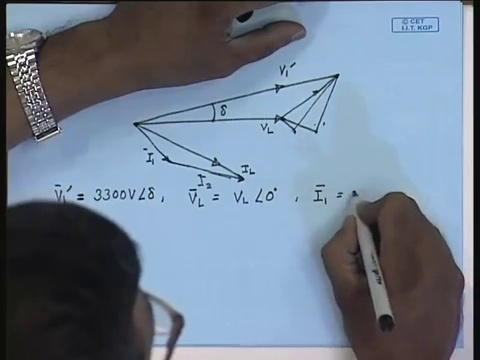 © CET
I.I.T. KGP
V₁′
δ
V_L
Ī₁
I₂
I_L
V̄₁′ = 3300V∠δ , V̄_L = V_L ∠0° , Ī₁ =